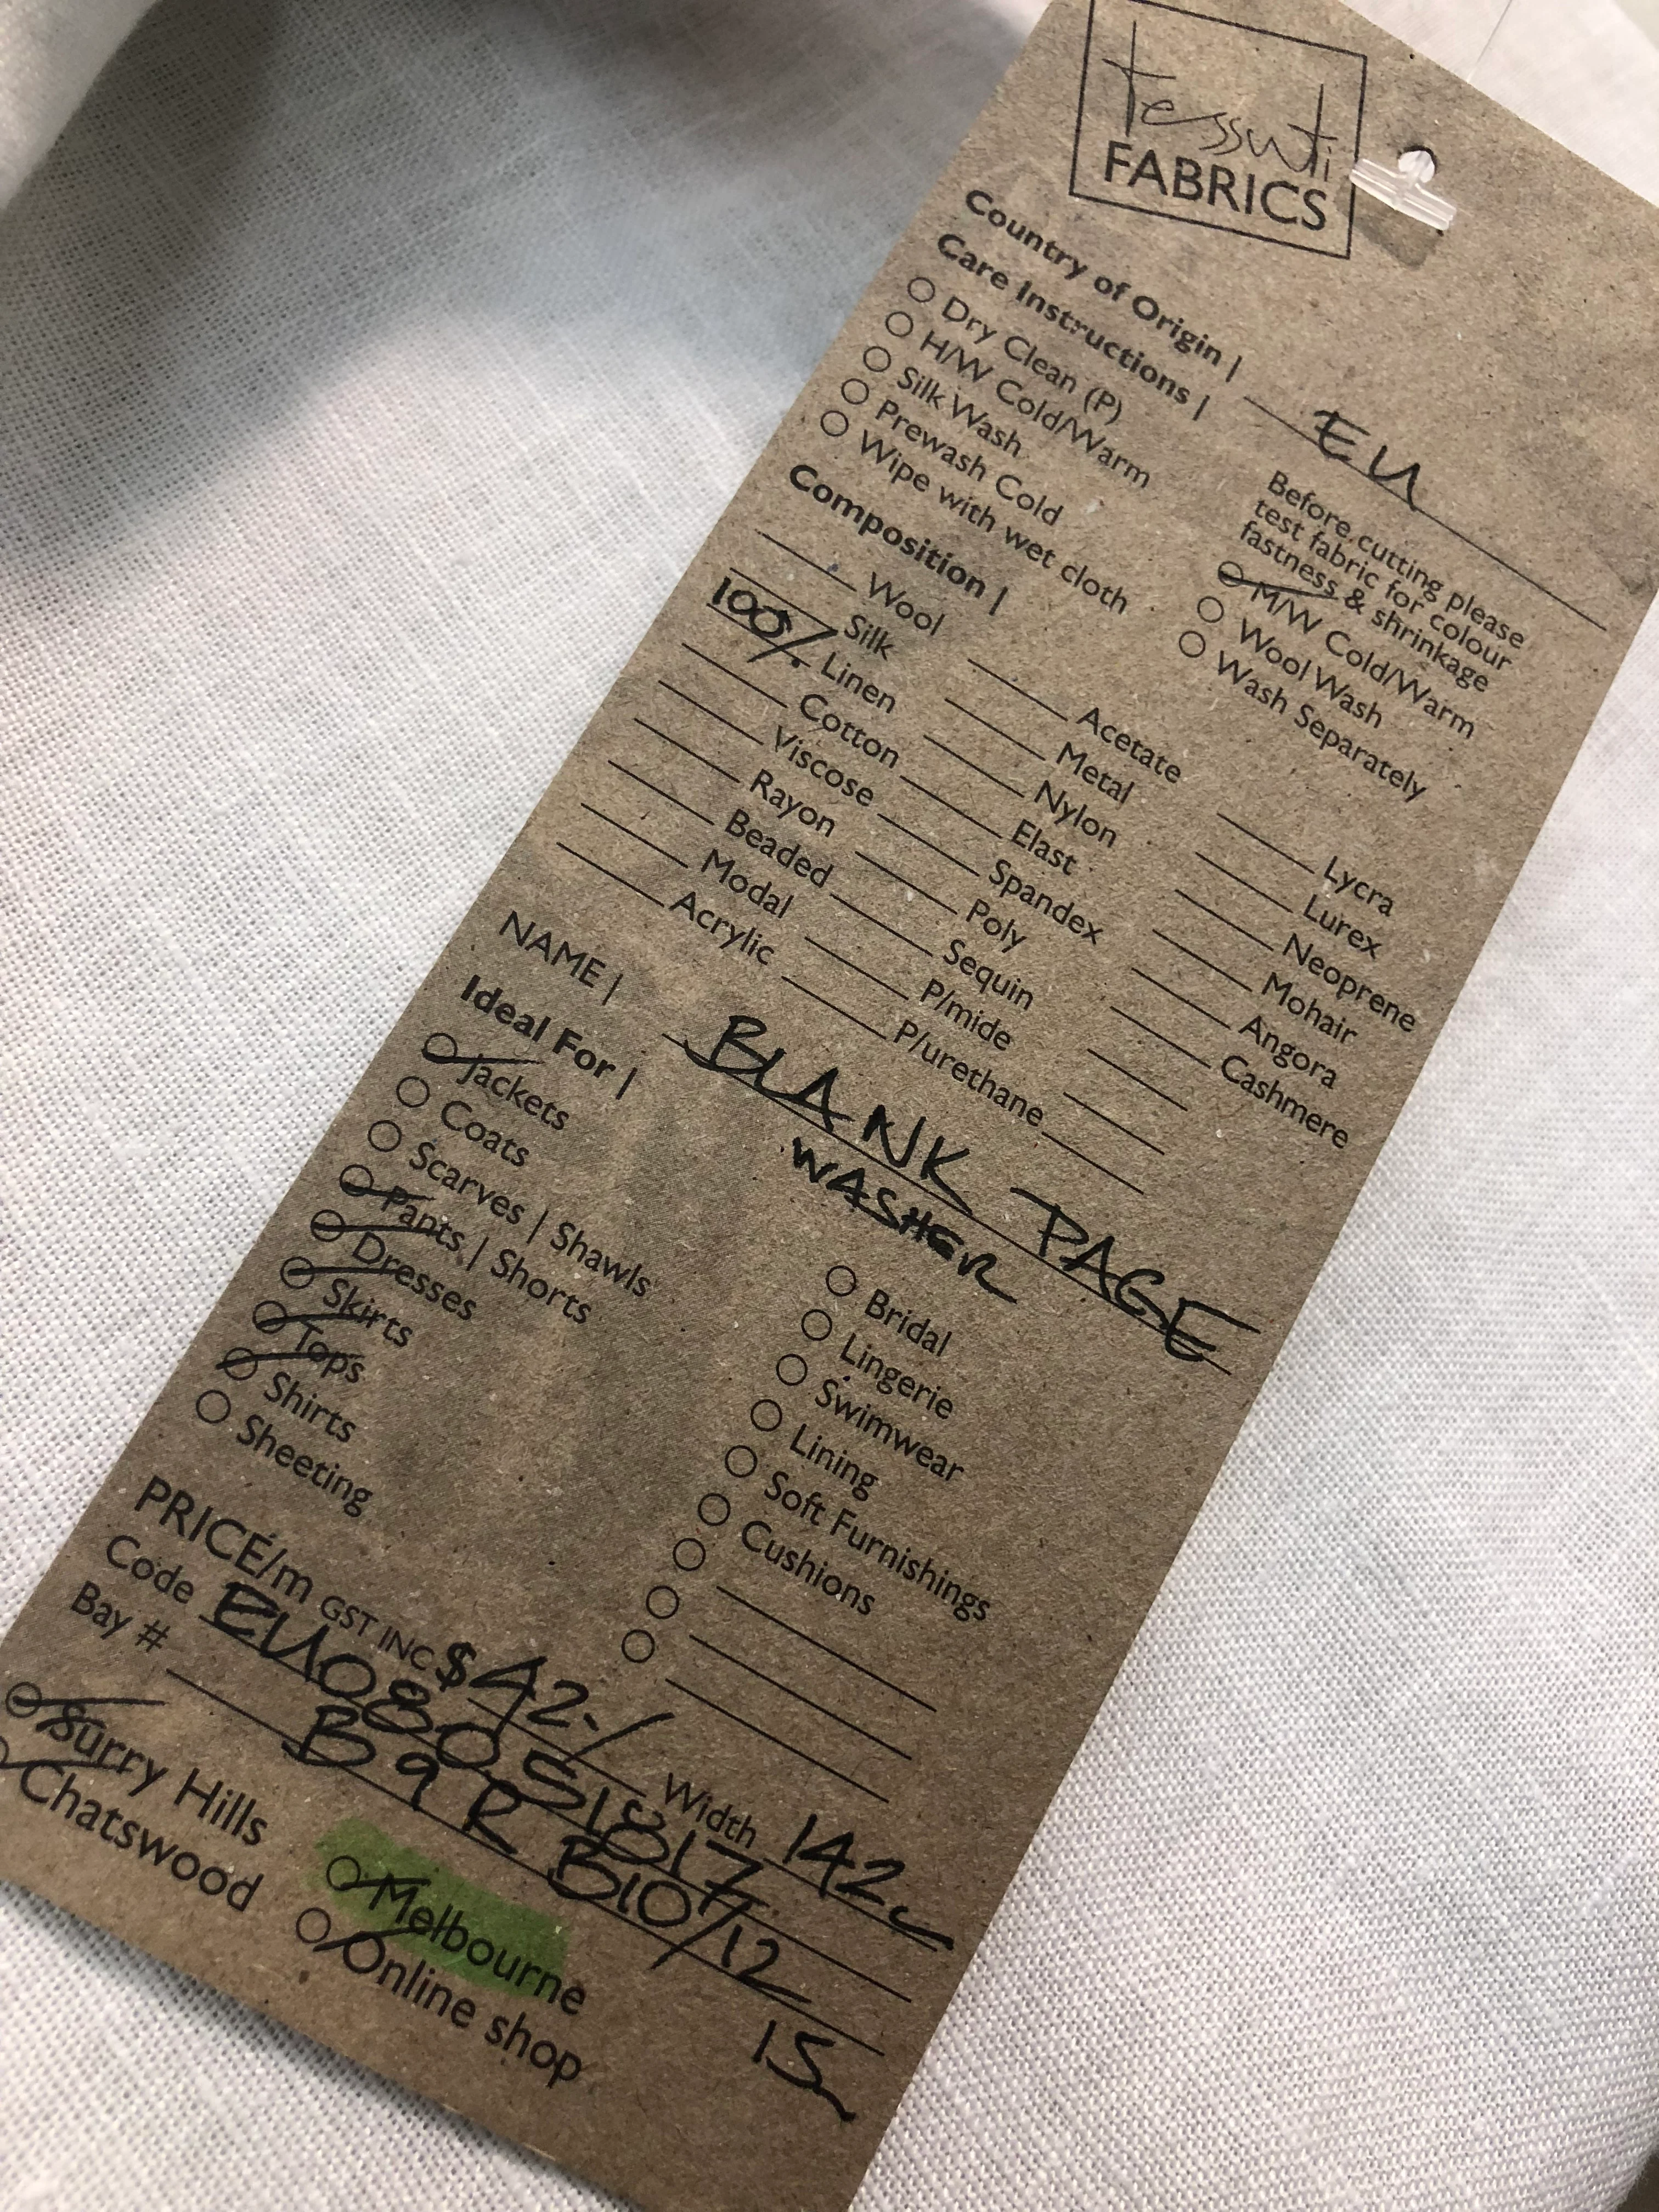 tessuti
FABRICS
Country of Origin | EU
Care Instructions |
Dry Clean (P)
H/W Cold/Warm
Silk Wash
Prewash Cold
Wipe with wet cloth
Before cutting please
test fabric for colour
fastness & shrinkage
M/W Cold/Warm
Wool Wash
Wash Separately
Composition |
Wool
Silk
100% Linen
Cotton
Viscose
Rayon
Beaded
Modal
Acrylic
Acetate
Metal
Nylon
Elast
Spandex
Poly
Sequin
P/mide
P/urethane
Lycra
Lurex
Neoprene
Mohair
Angora
Cashmere
NAME | BLANK PAGE
WASHER
Ideal For |
Jackets
Coats
Scarves | Shawls
Pants | Shorts
Dresses
Skirts
Tops
Shirts
Sheeting
Bridal
Lingerie
Swimwear
Lining
Soft Furnishings
Cushions
PRICE/m GST INC $42-/ Width 142c
Code EU08051817
Bay # B9R B10/12
15
Surry Hills
Chatswood
Melbourne
Online shop